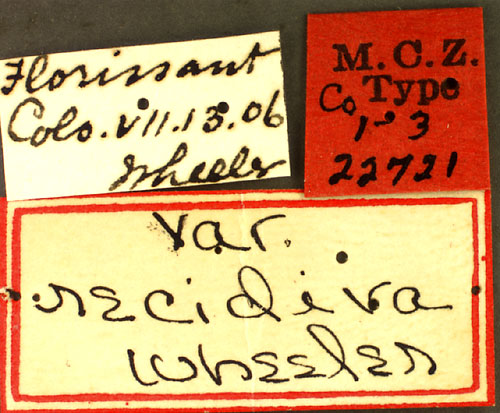 Florissant
Colo. VII.13.06
Wheeler
M.C.Z.
Co Type
1-3
22721
var.
recidiva
Wheeler